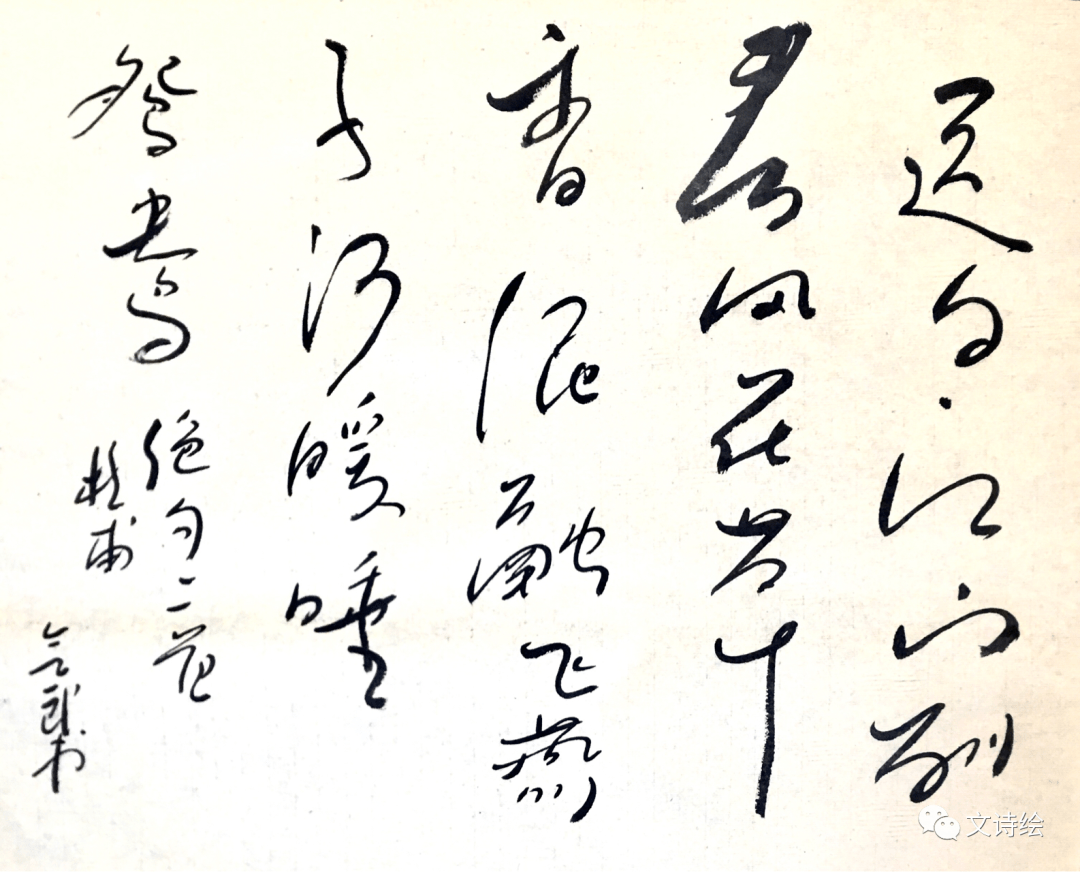 迟日江山丽
春风花草
香泥融飞燕
子沙暖睡
鸳鸯
绝句二首
杜甫
文诗绘